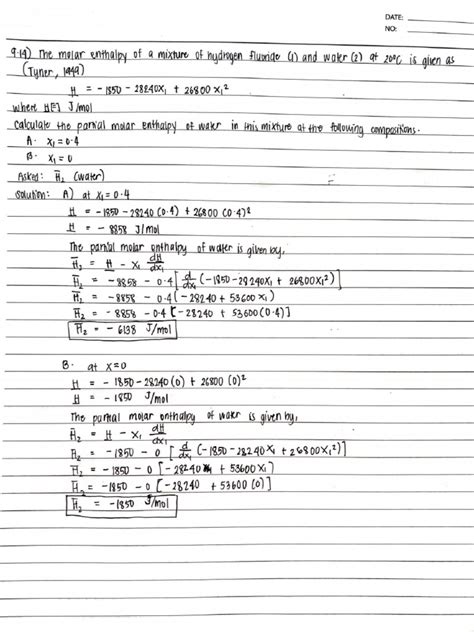 DATE:
NO:
9.14) The molar enthalpy of a mixture of hydrogen fluoride (1) and water (2) at 20°C is given as
(Tyner, 1949)
H = -1850 - 28240x₁ + 26800x₁²
where H[=] J/mol
Calculate the partial molar enthalpy of water in this mixture at the following compositions.
A. x₁ = 0.4
B. x₁ = 0
Asked: H̅₂ (water)
Solution: A) at x₁ = 0.4
H = -1850 - 28240 (0.4) + 26800 (0.4)²
H = -8858 J/mol
The partial molar enthalpy of water is given by,
H̅₂ = H - x₁ dH/dx₁
H̅₂ = -8858 - 0.4 [d/dx₁ (-1850 - 28240x₁ + 26800x₁²)]
H̅₂ = -8858 - 0.4 (-28240 + 53600x₁)
H̅₂ = -8858 - 0.4 [-28240 + 53600(0.4)]
H̅₂ = -6138 J/mol
B. at x=0
H = -1850 - 28240 (0) + 26800 (0)²
H = -1850 J/mol
The partial molar enthalpy of water is given by,
H̅₂ = H - x₁ dH/dx₁
H̅₂ = -1850 - 0 [d/dx₁ (-1850 - 28240x₁ + 26800x₁²)]
H̅₂ = -1850 - 0 [-28240 + 53600x₁]
H̅₂ = -1850 - 0 [-28240 + 53600 (0)]
H̅₂ = -1850 J/mol